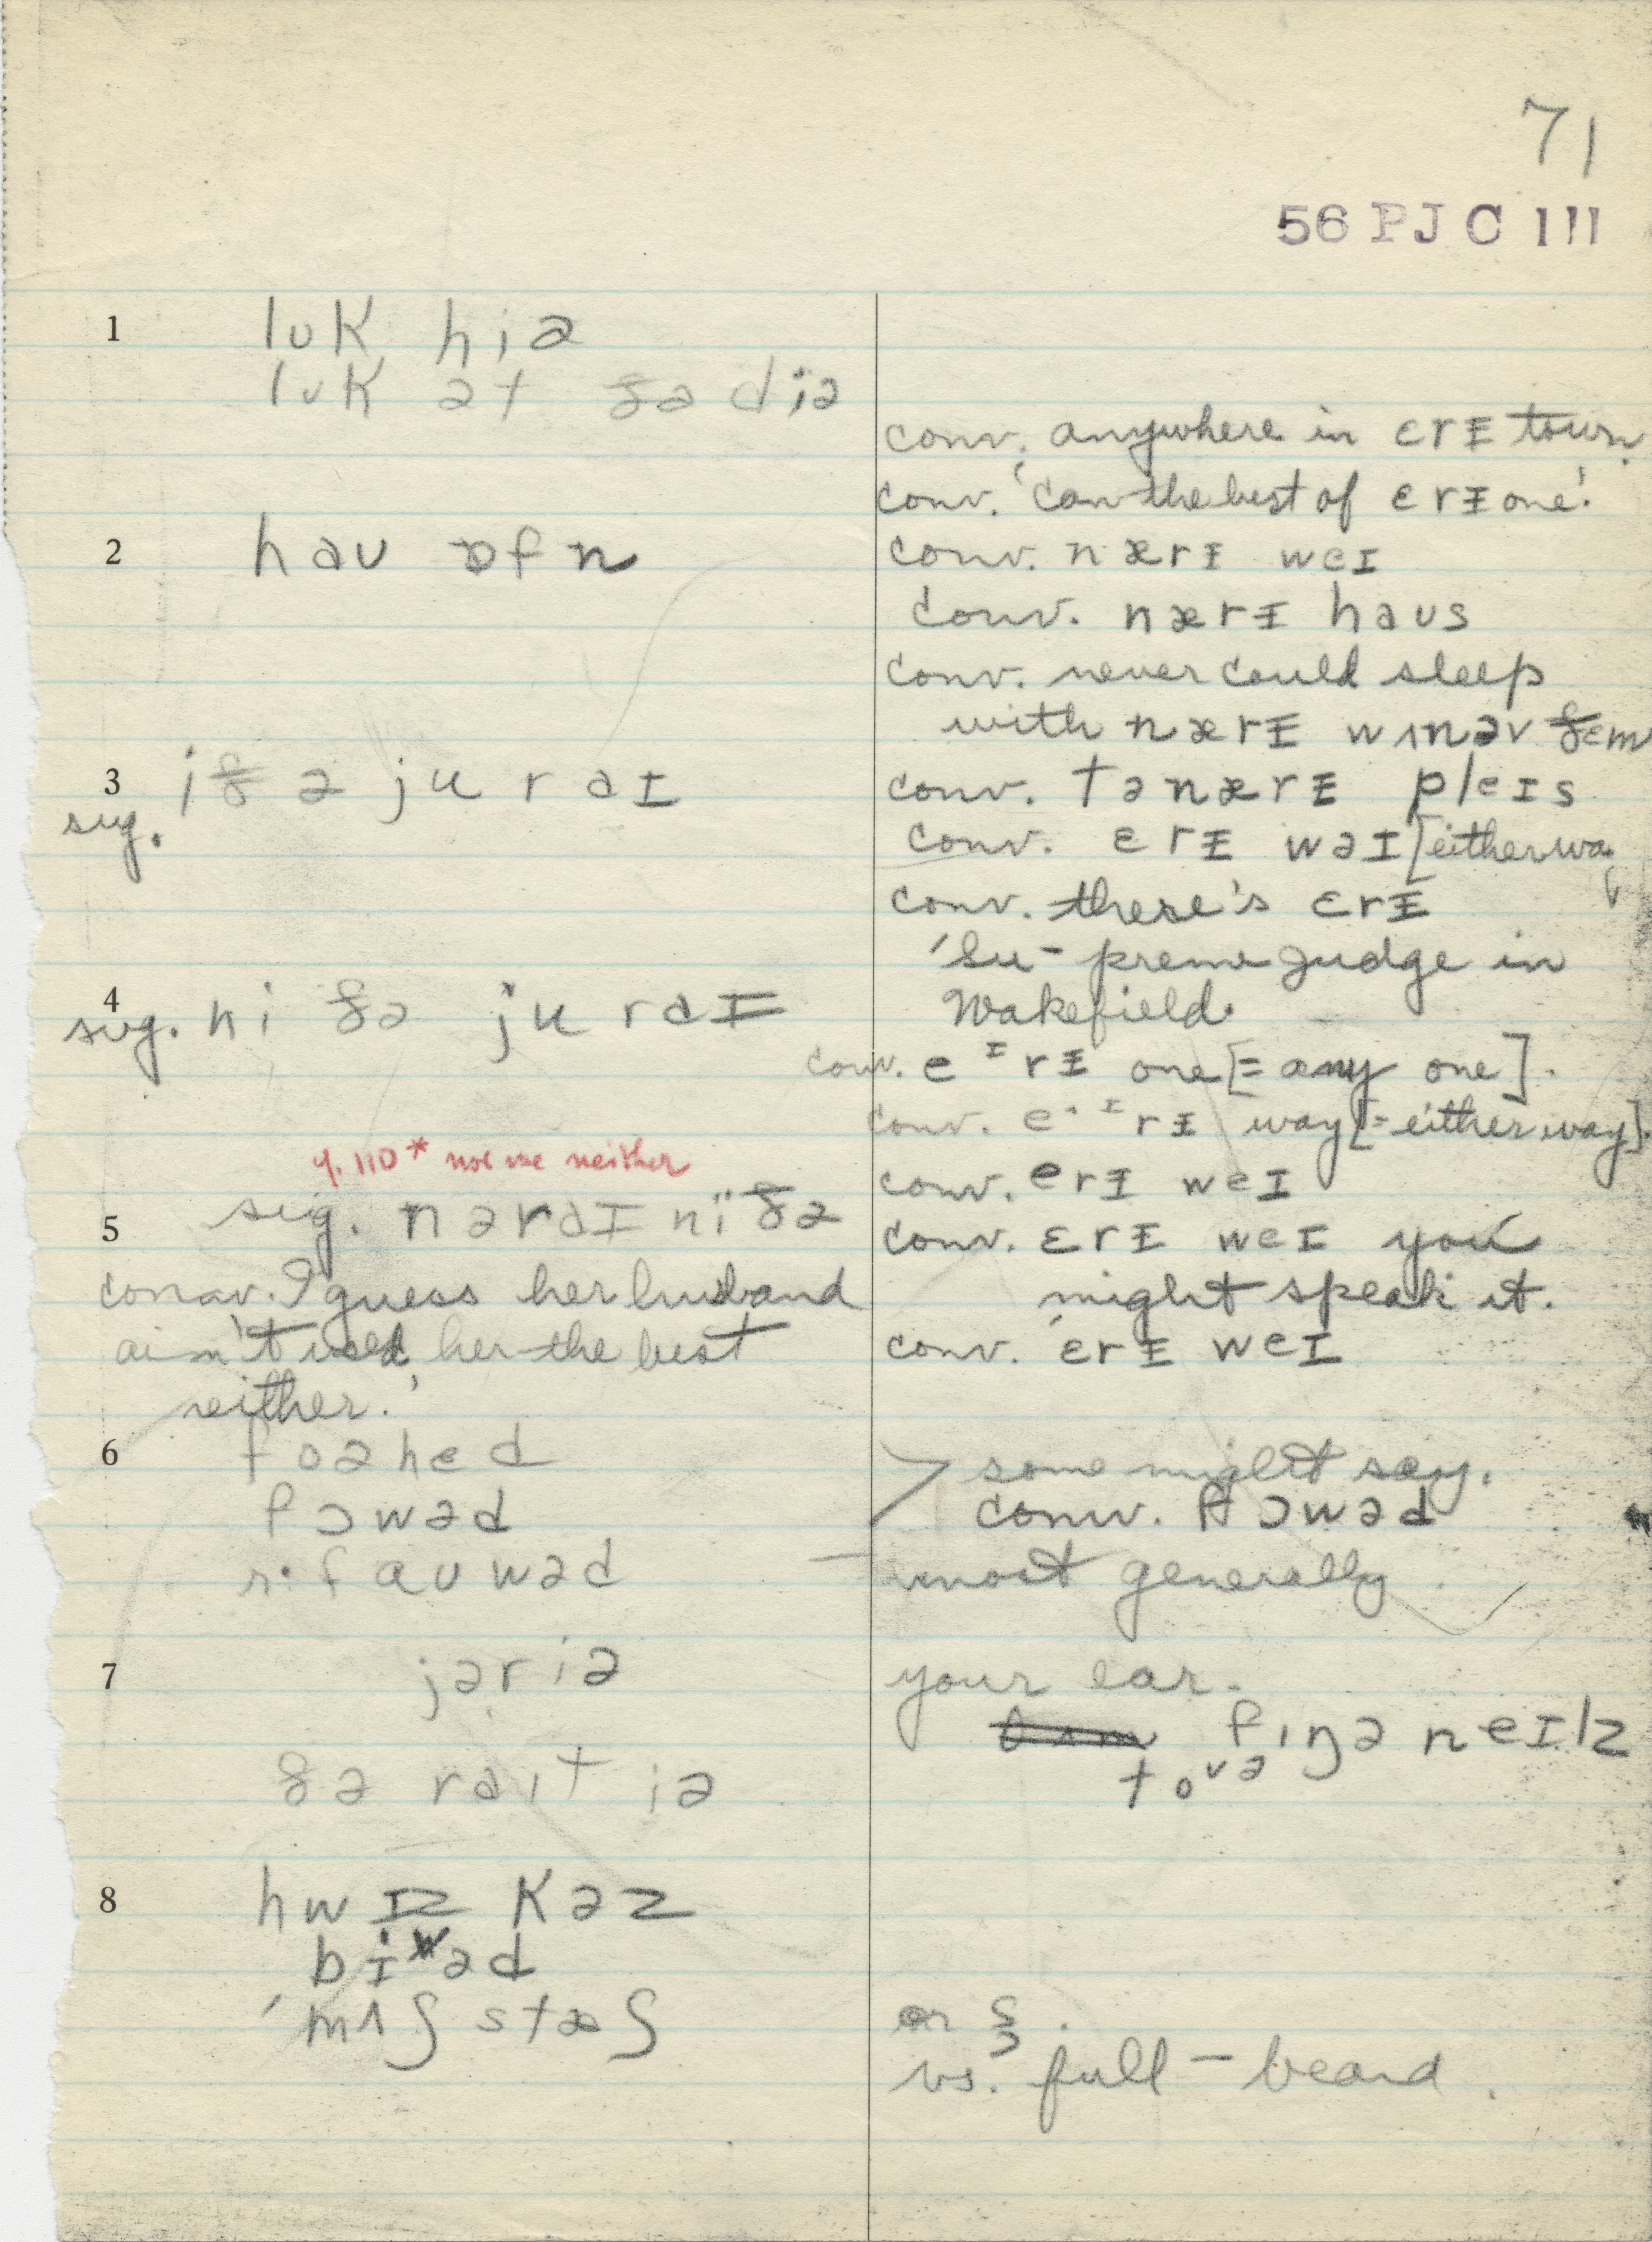 71
56 PJC 111
1 lʊk hiə
lʊk ət ðə diə
conv. anywhere in ɛrɪ town.
conv. 'Can the best of ɛrɪ one'.
2 hau ɒfn
conv. nærɪ weɪ
conv. nærɪ haus
conv. never could sleep
with nærɪ wʌn əv ðem
3 sug. iðə ju r aɪ
conv. tə nærɪ pleɪs
conv. ɛrɪ wəɪ [either way
conv. there's ɛrɪ
'Su-preme Judge in
Wakefield.
4 sug. niðə ju r aɪ
conv. eɪrɪ one [= any one].
conv. e·ɪrɪ way [= either way].
y. 110* not me neither
conv. erɪ weɪ
5 sug. nər aɪ niðə
conv. ɛrɪ weɪ you
might speak it.
conv. I guess her husband
ain't used her the best
neither.'
conv. ɛrɪ weɪ
6 foəhed
fɔwəd
r· fauwəd
some might say.
conv. fɔwəd
most generally
7 jər iə
your ear.
fɪŋə neɪlz
ðə raɪt iə
8 hwɪskəz
biwəd
'mʌʃstæʃ
or
vs. full-beard.